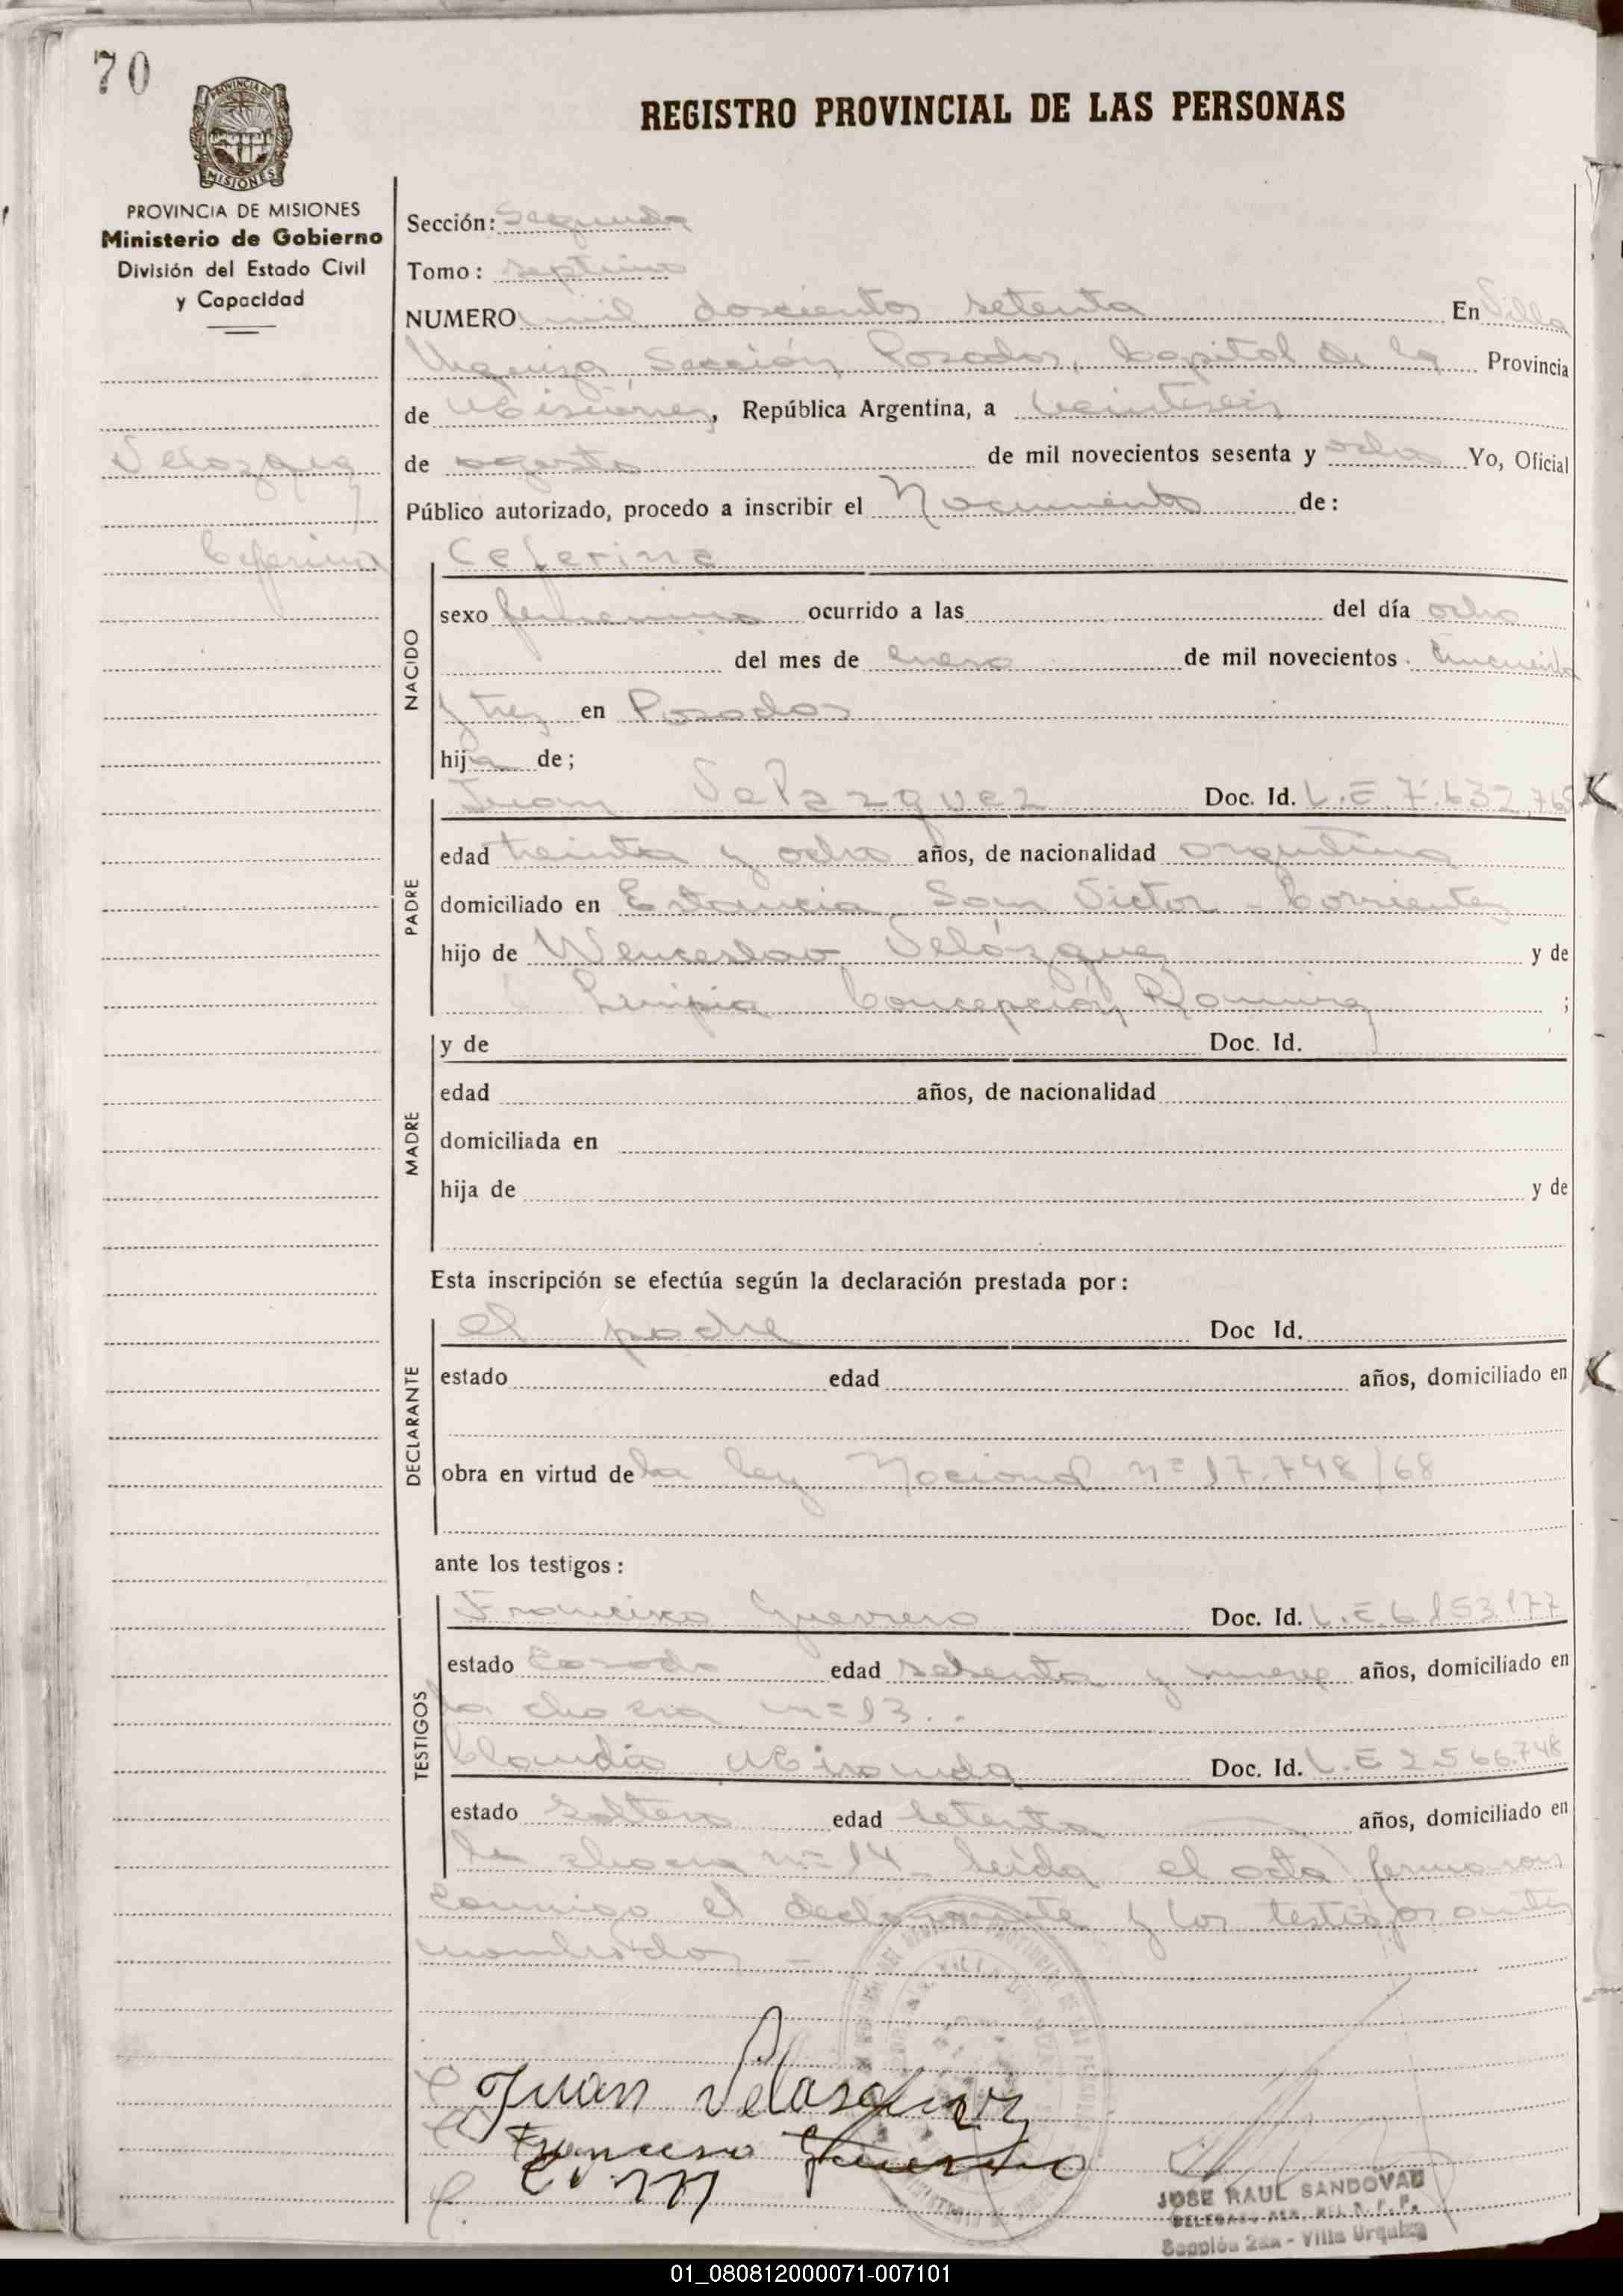 70
REGISTRO PROVINCIAL DE LAS PERSONAS
PROVINCIA DE MISIONES
Ministerio de Gobierno
División del Estado Civil
y Capacidad
Velázquez
Ceferina
Sección: Segunda
Tomo: septimo
NUMERO mil doscientos setenta En Villa
Urquiza, Sección Posadas, Capital de la Provincia
de Misiones, República Argentina, a veintiseis
de agosto de mil novecientos sesenta y ocho Yo, Oficial
Público autorizado, procedo a inscribir el Nacimiento de:
NACIDO
Ceferina
sexo femenino ocurrido a las del día ocho
del mes de enero de mil novecientos cincuenta
y tres en Posadas
hija de;
PADRE
Juan Velazquez Doc. Id. L.E. 7.632.765
edad treinta y ocho años, de nacionalidad argentina
domiciliado en Estancia San Victor - Corrientes
hijo de Wenceslao Velázquez y de
Limpia Concepción Ramirez ;
MADRE
y de Doc. Id.
edad años, de nacionalidad
domiciliada en
hija de y de
Esta inscripción se efectúa según la declaración prestada por:
DECLARANTE
el padre Doc Id.
estado edad años, domiciliado en
obra en virtud de la ley Nacional nº 17.748/68
ante los testigos:
TESTIGOS
Francisco Guerrero Doc. Id. L.E. 6153177
estado Casado edad y nueve años, domiciliado en
la chacra nº 13..
Claudio Miranda Doc. Id. L.E 2566.748
estado Soltero edad setenta años, domiciliado en
la chacra nº 14. leída el acta firmaron
conmigo el declarante y los testigos antes
nombrados -
Juan Velasquez
Francisco Guerrero
C. M
JOSE RAUL SANDOVAL
Sección 2da - Villa Urquiza
01_080812000071-007101